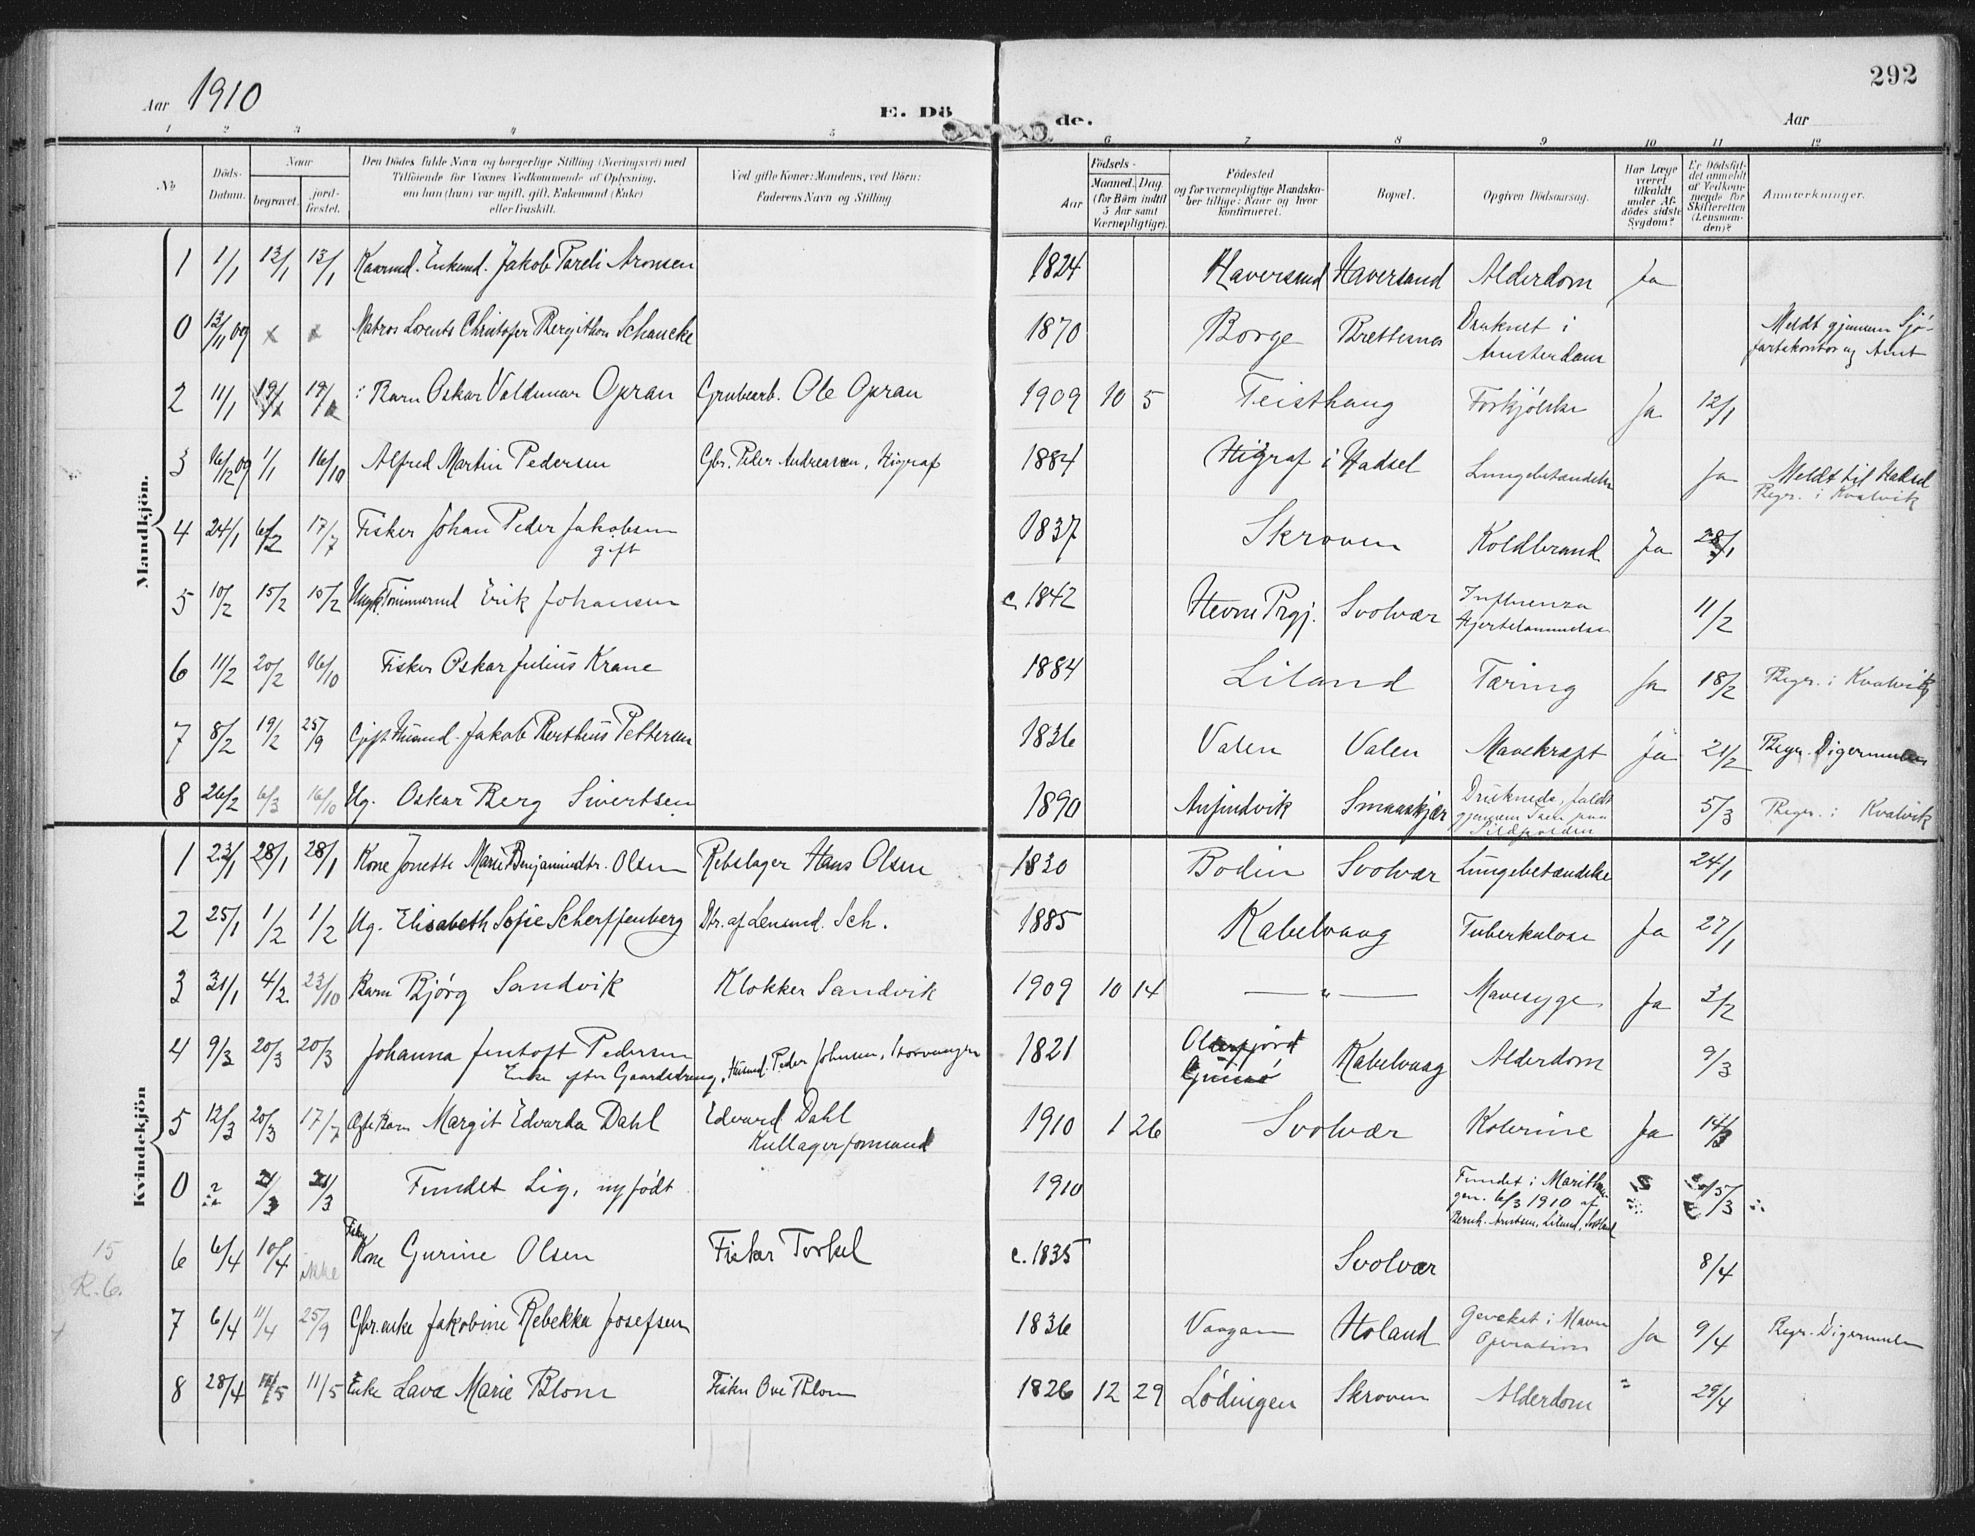 292
Aar 1910
E. Dö de.
Aar
1 2 3 4 5 6 7 8 9 10 11 12
No
Döds-Datum.
Naar begravet. jordfæstet.
Den Dödes fulde Navn og borgerlige Stilling (Næringsvei) med
Tilföiende for Voxnes Vedkommende af Oplysning,
om han (hun) var ugift, gift, Enkemand (Enke)
eller fraskilt.
Ved gifte Koner: Mandens, ved Börn:
Faderens Navn og Stilling.
Födsels-
Aar
Maaned. Dag.
(for Börn indtil
5 Aar samt
Værnepligtige).
Födested
og for værnepligtige Mandskaber tillige: Naar og hvor
konfirmeret.
Bopæl.
Opgiven Dödsaarsag.
Har Læge været tilkaldt under Afdödes sidste Sygdom?
Er Dödsfaldet anmeldt af Vedkommende for Skifteretten (Lensmanden)?
Anmærkninger.
Mandkjön.
1 1/1 13/1 13/1 Kaarmd. Enkemd. Jakob Pareli Aronsen 1824 Haversand Haversand Alderdom Ja
0 13/11 09 x x Matros Lorents Christofer Bergithon Schancke 1870 Borge Brettesnes Druknet i Amsterdam Meldt gjennem Sjöfartskontor og Amt
2 11/1 Barn Oskar Valdemar Opran Grubearb. Ole Opran 1909 10 5 Teisthaug Forkjölelse Ja 12/1
3 16/12 09 1/1 16/10 Alfred Martin Pedersen Gbr. Peder Andreasen, Higraf 1884 Higraf i Hadsel Lungebetændelse Ja Meldt til Hadsel
Begr. i Kvalvik
4 24/1 6/2 17/7 Fisker Johan Peder Jakobsen
gift 1837 Skroven Koldbrand Ja 28/1
5 10/2 15/2 15/2 Ungk. Tømmermd Erik Johansen c. 1842 Hevne Prgj. Svolvær Influenza
Hjertelammelse 11/2
6 11/2 20/2 16/10 Fisker Oskar Julius Krane 1884 Liland Tæring Ja 18/2 Begr. i Kvalvik
7 8/2 19/2 25/9 Gift Husmd. Jakob Berthius Pettersen 1836 Valen Valen Mavekræft Ja 21/2 Begr. Digermulen
8 26/2 6/3 16/10 Ug. Oskar Berg Sivertsen 1890 Anfindvik Smaaskjær Druknede, faldt
gjennem Isen paa
Sildpolden 5/3 Begr. i Kvalvik
Kvindekjön
1 23/1 28/1 28/1 Kone Jonette Marie Benjamindtr. Olsen Rebslager Hans Olsen 1830 Bodin Svolvær Lungebetændelse 24/1
2 25/1 1/2 1/2 Ug. Elisabeth Sofie Scherffenberg Dtr. af Lensmd. Sch. 1885 Kabelvaag Tuberkulose Ja 27/1
3 31/1 4/2 23/10 Barn Bjørg Sandvik Klokker Sandvik 1909 10 14 — " — Mavesyge Ja 3/2
4 9/3 20/3 20/3 Johanna Jentoft Pedersen
Enke efter Gaardsdreng, Husmd. Peder Johnsen, Storvaagen 1821 Kabelvaag Alderdom 9/3
5 12/3 20/3 17/7 Margit Edvarda Dahl Edvard Dahl
Kullagerformand 1910 1 26 Svolvær Kolerine Ja 14/3
0 ? 21/3 21/3 Fundet Lig, nyfödt 1910 Fundet i 6/3 1910 af
Bernh. Arntsen, Liland, 15/3
6 6/4 10/4 ikke Fisker Kone Gurine Olsen Fisker Torkel c. 1835 Svolvær 8/4
7 6/4 11/4 25/9 Gbr.enke Jakobine Rebekka Josefsen 1836 Vaagan Holand Gevekst i Maven
Operation Ja 9/4 Begr. Digermulen
8 28/4 11/5 Enke Lava Marie Blom Fisker Ove Blom 1826 12 29 Lödingen Skroven Alderdom " 29/4
15
R. 6.